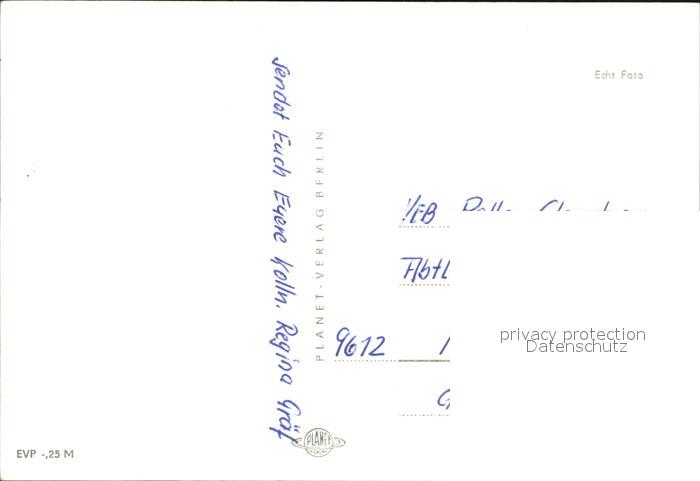 Echt Foto
sendet Euch Euere Kolln. Regina Gräf
PLANET-VERLAG BERLIN
VEB
Abtl
9612
G
PLANET
EVP -,25 M
privacy protection
Datenschutz